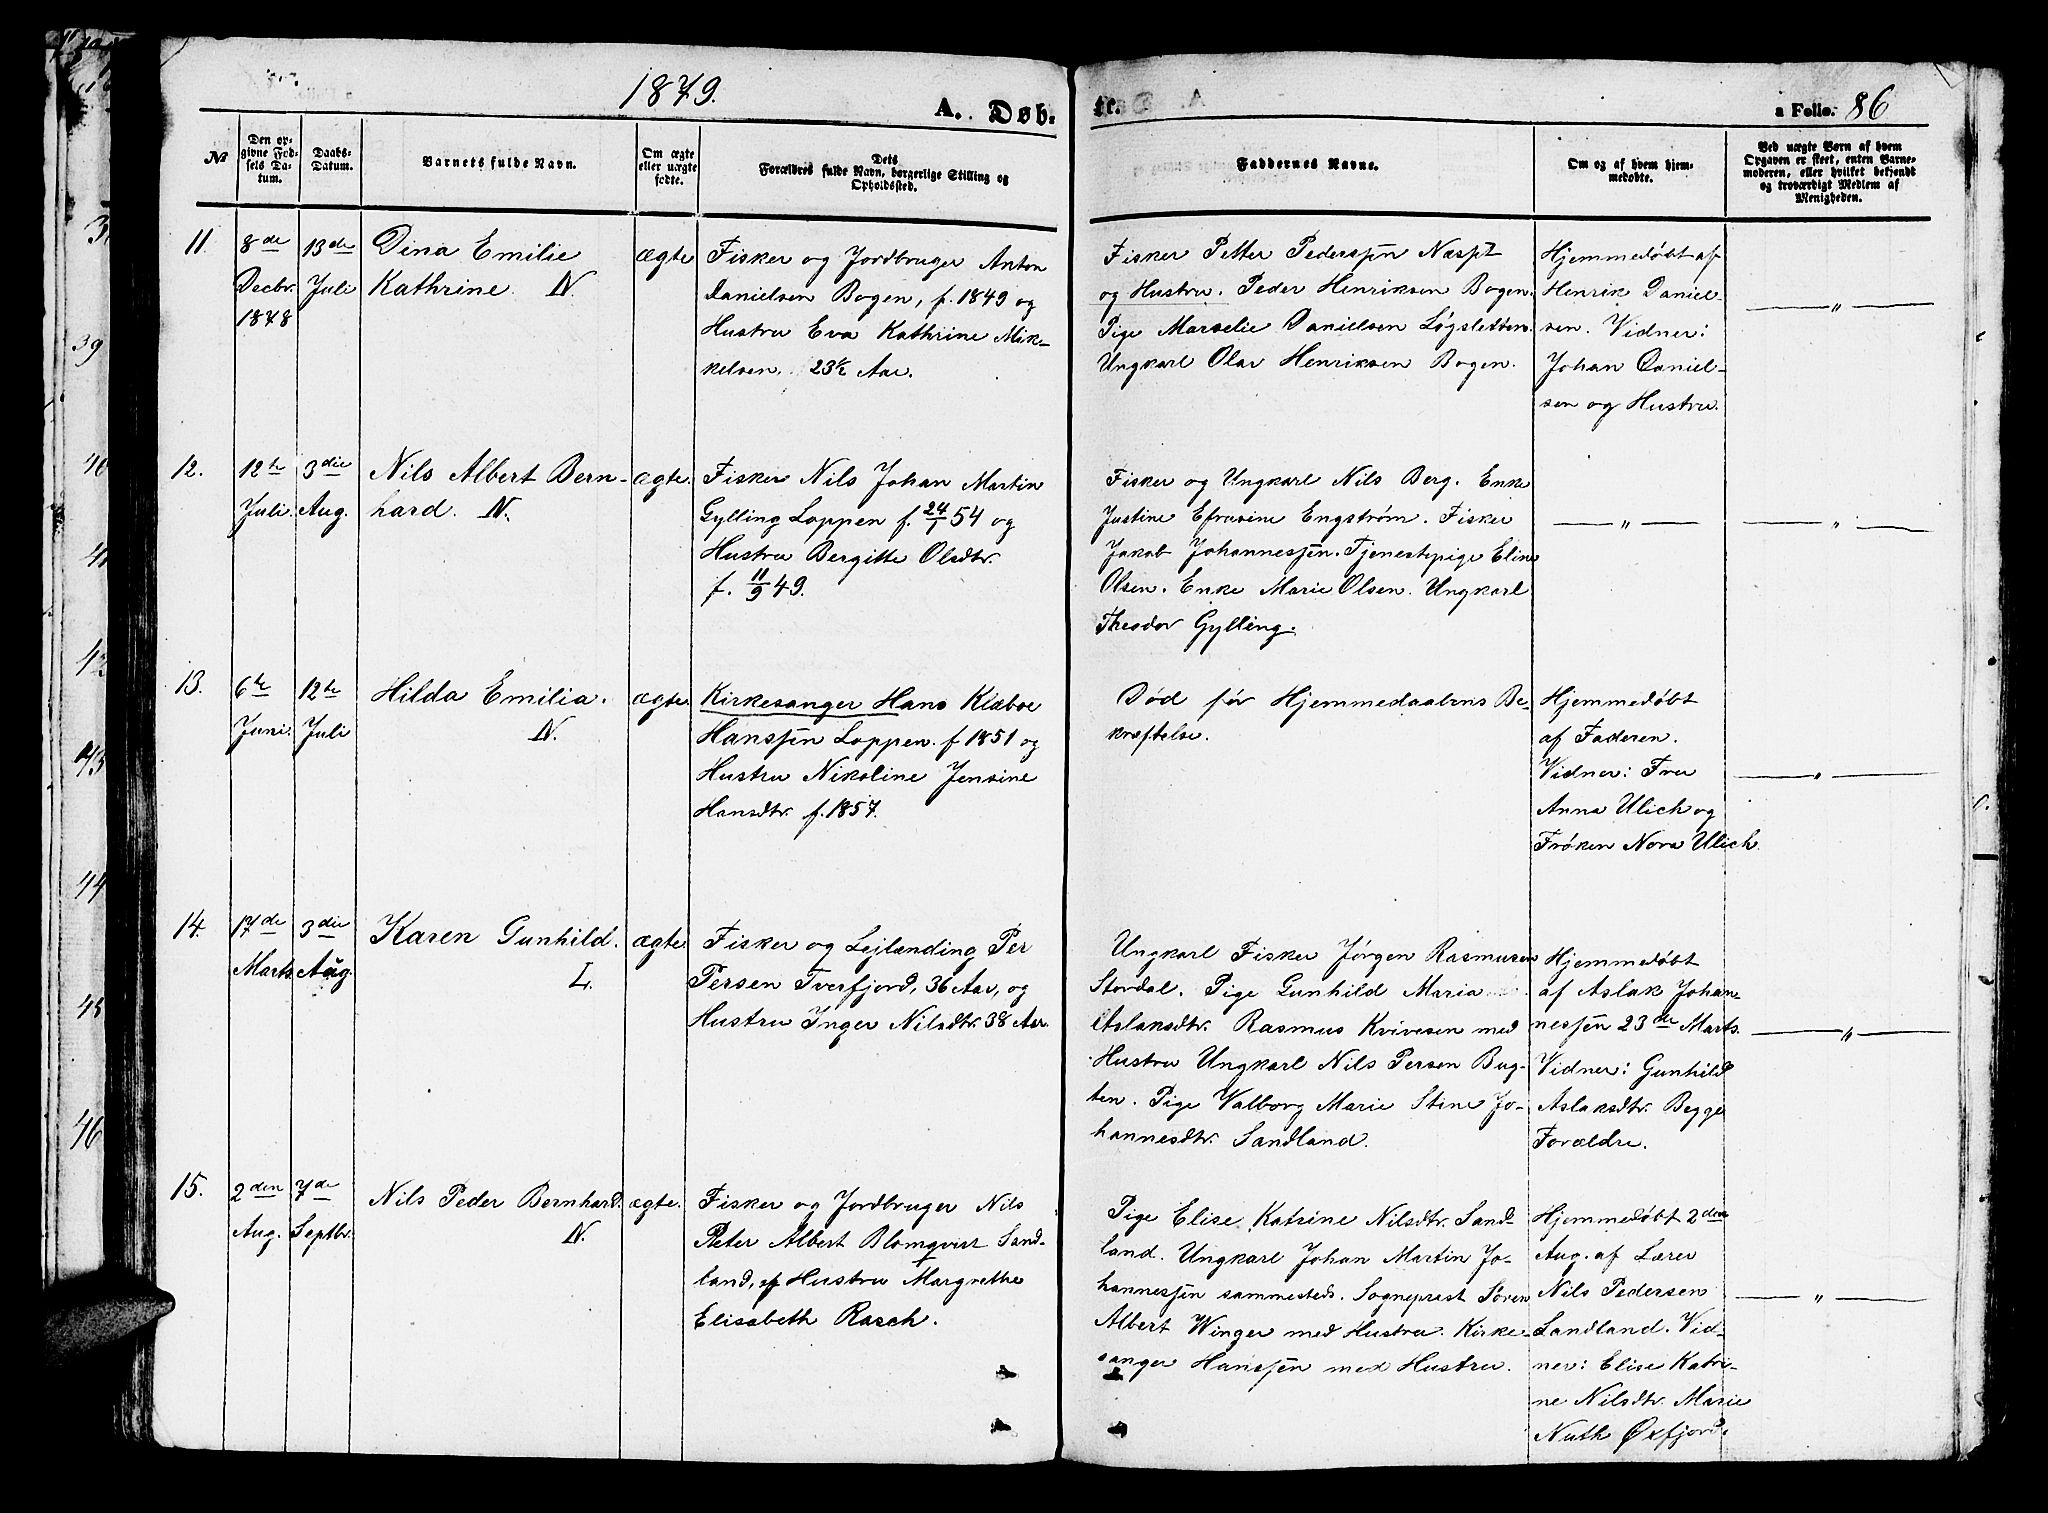 1879.
A. Døb-
te.
a Folio. 86
№
Den op-
givne Fød-
sels Da-
tum.
Daabs-
Datum.
Barnets fulde Navn.
Om ægte
eller uægte
fødte.
Dets
Forældres fulde Navn, borgerlige Stilling og
Opholdssted.
Faddernes Navne.
Om og af hvem hjem-
medøbte.
Ved uægte Børn af hvem
Opgaven er skeet, enten Barne-
moderen, eller hvilket bekjendt
og troværdigt Medlem af
Menigheden.
11.
8de
Decbr.
1878
13de
Juli
Dina Emilie
Kathrine. N.
ægte
Fisker og Jordbruger Anton
Danielsen Bogen, f. 1849 og
Hustru Eva Kathrine Mik-
kelsen. 23½ Aar.
Fisker Petter Pederssen Næsp
og Hustru. Peder Henriksen Bogen.
Pige Marselie Danielsen Løgsletten.
Ungkarl Olav Henriksen Bogen.
Hjemmedøbt af
Henrik Daniel-
sen. Vidner:
Johan Daniel-
sen og Hustru.
— " —
12.
12te
Juli.
3die
Aug.
Nils Albert Bern-
hard. N.
ægte
Fisker Nils Johan Martin
Gylling Loppen f. 24/1 54 og
Hustru Bergitte Olsdtr.
f. 11/9 49.
Fisker og Ungkarl Nils Berg. Enke
Justine Efrosine Engstrøm. Fisker
Jakob Johannessen. Tjenestepige Eline
Olsen. Enke Marie Olsen. Ungkarl
Theodor Gylling.
— " —
— " —
13.
6te
Juni.
12te
Juli
Hilda Emilia.
N.
ægte
Kirkesanger Hans Klæboe
Hanssen Loppen. f 1851 og
Hustru Nikoline Jensine
Hansdtr. f. 1857.
Død før Hjemmedaabens Be-
kræftelse.
Hjemmedøbt
af Faderen.
Vidner: Fru
Anna Ulich og
Frøken Nora Ulich.
— " —
14.
17de
Marts
3die
Aug.
Karen Gunhild.
L.
ægte
Fisker og Lejlænding Per
Persen Tverfjord, 36 Aar, og
Hustru Inger Nilsdtr. 38 Aar.
Ungkarl Fisker Jørgen Rasmusen
Stordal. Pige Gunhild Maria
Aslaksdtr. Rasmus Kvivesen med
Hustru Ungkarl Nils Persen Bug-
ten. Pige Valborg Marie Stine Jo-
hannesdtr. Sandland.
Hjemmedøbt
af Aslak Johan-
nessen 23de Marts.
Vidner: Gunhild
Aslaksdtr. Begge
Forældre.
— " —
15.
2den
Aug.
7de
Septbr.
Nils Peder Bernhard.
N.
ægte.
Fisker og Jordbruger Nils
Peter Albert Blomqvist Sand-
land, og Hustru Margrethe
Elisabeth Rasch.
Pige Elise Katrine Nilsdtr. Sand-
land. Ungkarl Johan Martin Jo-
hannessen sammesteds. Sogneprest Søren
Albert Winger med Hustru. Kirke-
sanger Hanssen med Hustru.
Hjemmedøbt 2den
Aug. af Lærer
Nils Pedersen
Sandland. Vid-
ner: Elise Katri-
ne Nilsdtr. Marie
Nuth Øxfjord.
— " —
39
40
41
42
43
44
45
46